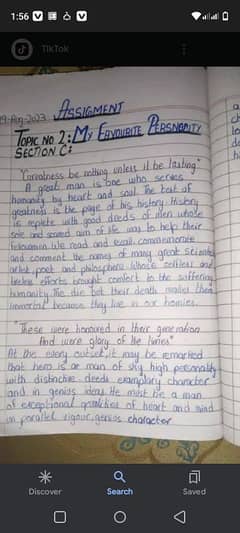 1:56
TikTok
19-Aug-2023 ASSIGMENT
TOPIC NO 2: MY FAVOURITE PERSNOALITY
SECTION C:
"Greatness be nothing unless it be lasting"
A great man is one who serves
humanity by heart and soul. The test of
greatness is the page of his history. History
is replete with good deeds of men whose
sole and sacred aim of life was to help their
fellowmen. We read and recall, commemorate
and comment the names of many great scientist
artist, poet and philosophers. Whose selfless and
tireless efforts brought comfort to the suffering
humanity. The die but their death makes them
immortal because they live in our
"These were honoured in their generation
And were glory of the times"
At the every outset it may be remarked
that hero is a man of sky high personality
with distinctive deeds exemplary character
and in genius ideas. He must be a man
of exceptional qualities of heart and mind
in parallel vigour, genius character
Discover
Search
Saved